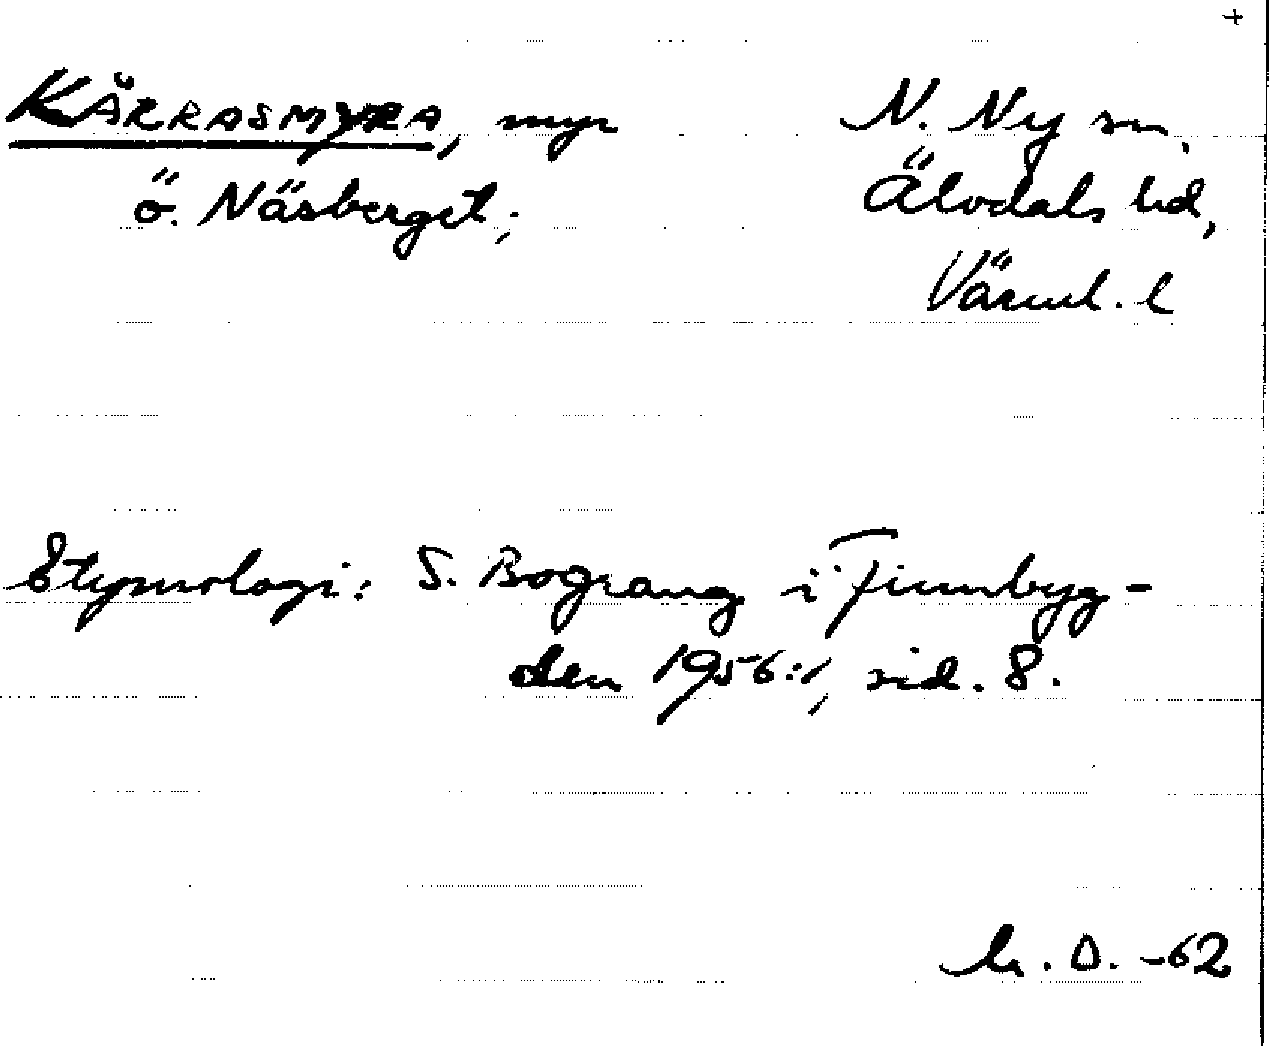 +
KÄRRASMYRA, myr N. Ny sn,
ö. Näsberget; Älvdals hd,
Värml. l
Etymologi: S. Bograng i Finnbyg-
den 1956:1, sid. 8.
O. -62